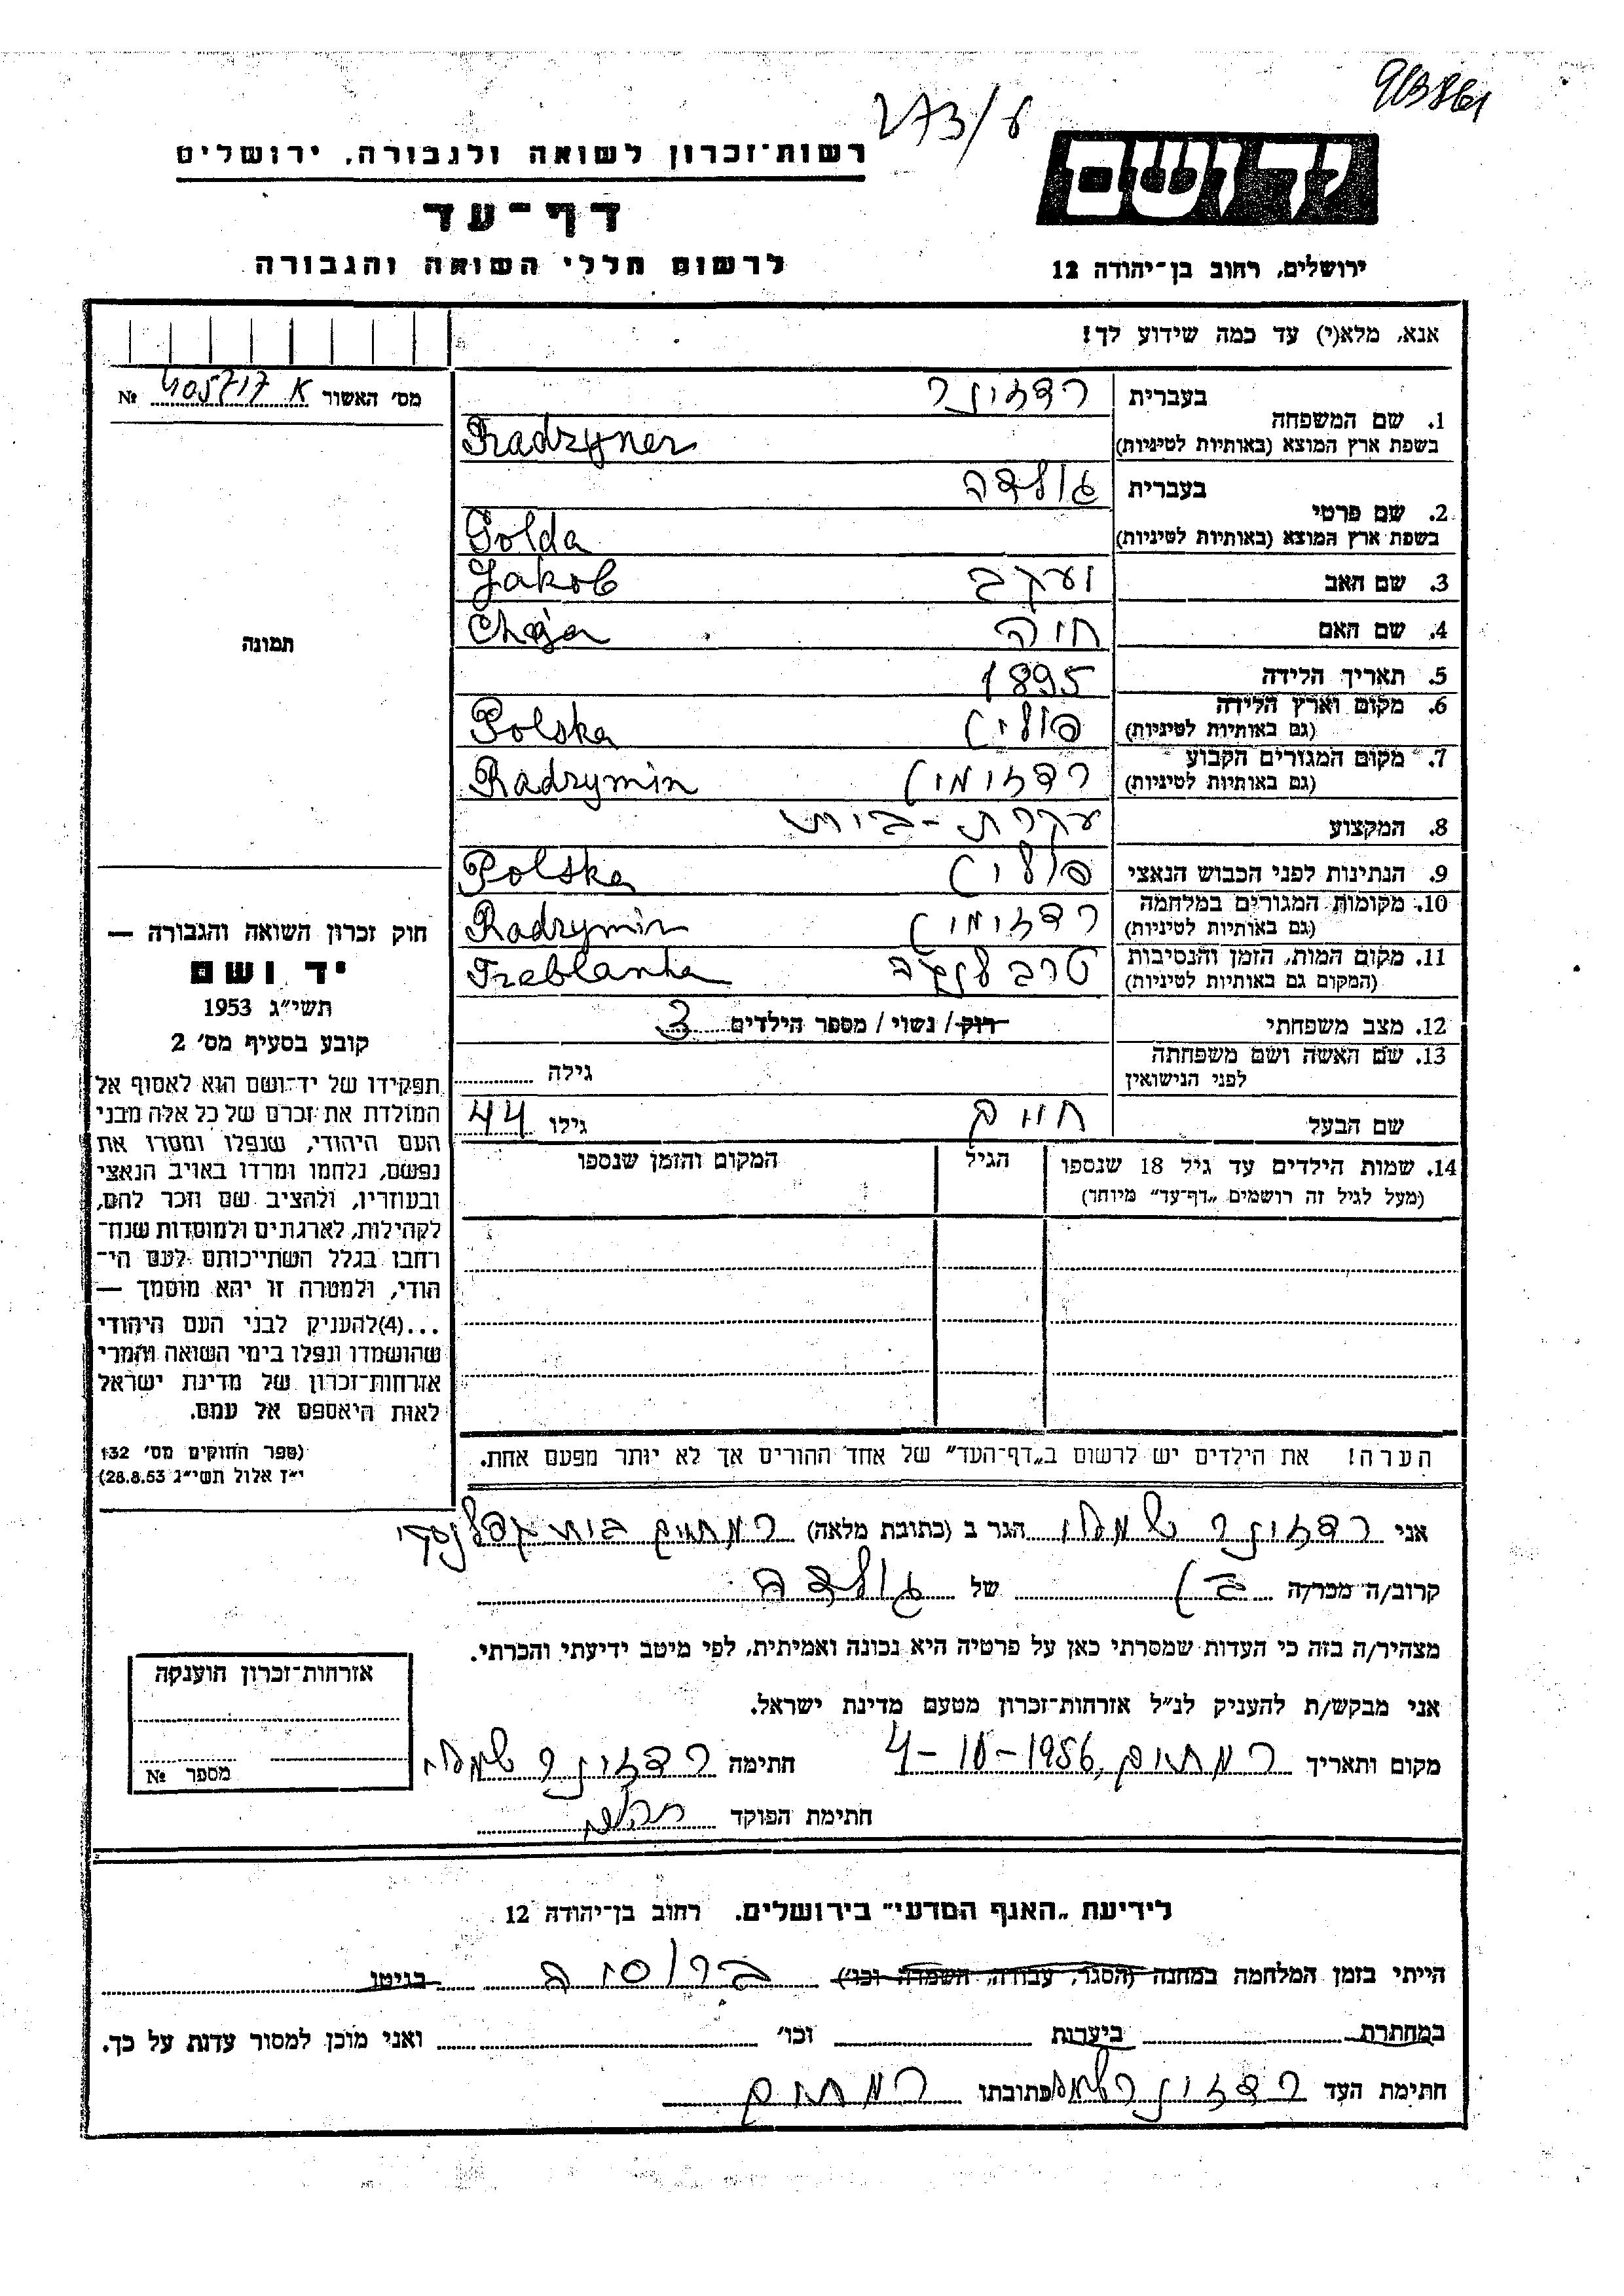 913861
273/6
יד ושם
רשות־זכרון לשואה ולגבורה, ירושלים
דף־עד
לרשום חללי השואה והגבורה
ירושלים, רחוב בן־יהודה 12
אנא, מלא(י) עד כמה שידוע לך!
מס׳ האשור א 405717 №
1. שם המשפחה
בעברית רדזינר
בשפת ארץ המוצא (באותיות לטיניות) Radzyner
2. שם פרטי
בעברית גולדה
בשפת ארץ המוצא (באותיות לטיניות) Golda
3. שם האב יעקב Jakob
4. שם האם חיה Chaja
5. תאריך הלידה 1895
6. מקום וארץ הלידה
(גם באותיות לטיניות) פולין Polska
7. מקום המגורים הקבוע
(גם באותיות לטיניות) רדזימין Radzymin
8. המקצוע עקרת-בית
9. הנתינות לפני הכבוש הנאצי פולין Polska
10. מקומות המגורים במלחמה
(גם באותיות לטיניות) רדזימין Radzymin
11. מקום המות, הזמן והנסיבות
(המקום גם באותיות לטיניות) טרבלנקה Treblanka
12. מצב משפחתי רוק / נשוי / מספר הילדים 3
13. שם האשה ושם משפחתה
לפני הנישואין גילה
שם הבעל חיים גילו 44
14. שמות הילדים עד גיל 18 שנספו
(מעל לגיל זה רושמים „דף־עד״ מיוחד)
הגיל
המקום והזמן שנספו
תמונה
חוק זכרון השואה והגבורה —
יד ושם
תשי״ג 1953
קובע בסעיף מס׳ 2
תפקידו של יד־ושם הוא לאסוף אל
המולדת את זכרם של כל אלה מבני
העם היהודי, שנפלו ומסרו את
נפשם, נלחמו ומרדו באויב הנאצי
ובעוזריו, ולהציב שם וזכר להם,
לקהילות, לארגונים ולמוסדות שנח־
רחבו בגלל השתייכותם לעם הי־
הודי, ולמטרה זו יהא מוסמך —
...(4)להעניק לבני העם היהודי
שהושמדו ונפלו בימי השואה והמרי
אזרחות־זכרון של מדינת ישראל
לאות היאספם אל עמם.
(ספר החוקים מס׳ 132
י״ז אלול תשי״ג 28.8.53)
הערה! את הילדים יש לרשום ב„דף־העד״ של אחד ההורים אך לא יותר מפעם אחת.
אני רדזינר הגר ב (כתובת מלאה)
קרוב/ה מכר/ה בן של גולדה
מצהיר/ה בזה כי העדות שמסרתי כאן על פרטיה היא נכונה ואמיתית, לפי מיטב ידיעתי והכרתי.
אני מבקש/ת להעניק לנ״ל אזרחות־זכרון מטעם מדינת ישראל.
מקום ותאריך 4-10-1956 חתימה רדזינר
חתימת הפוקד
אזרחות־זכרון הוענקה
מספר №
לידיעת „האגף המדעי״ בירושלים. רחוב בן־יהודה 12
הייתי בזמן המלחמה במחנה (הסגר, עבודה, השמדה וכו׳) ברוסיה בגיטו
במחתרת ביערות וכו׳ ואני מוכן למסור עדות על כך.
חתימת העד רדזינר כתובתו